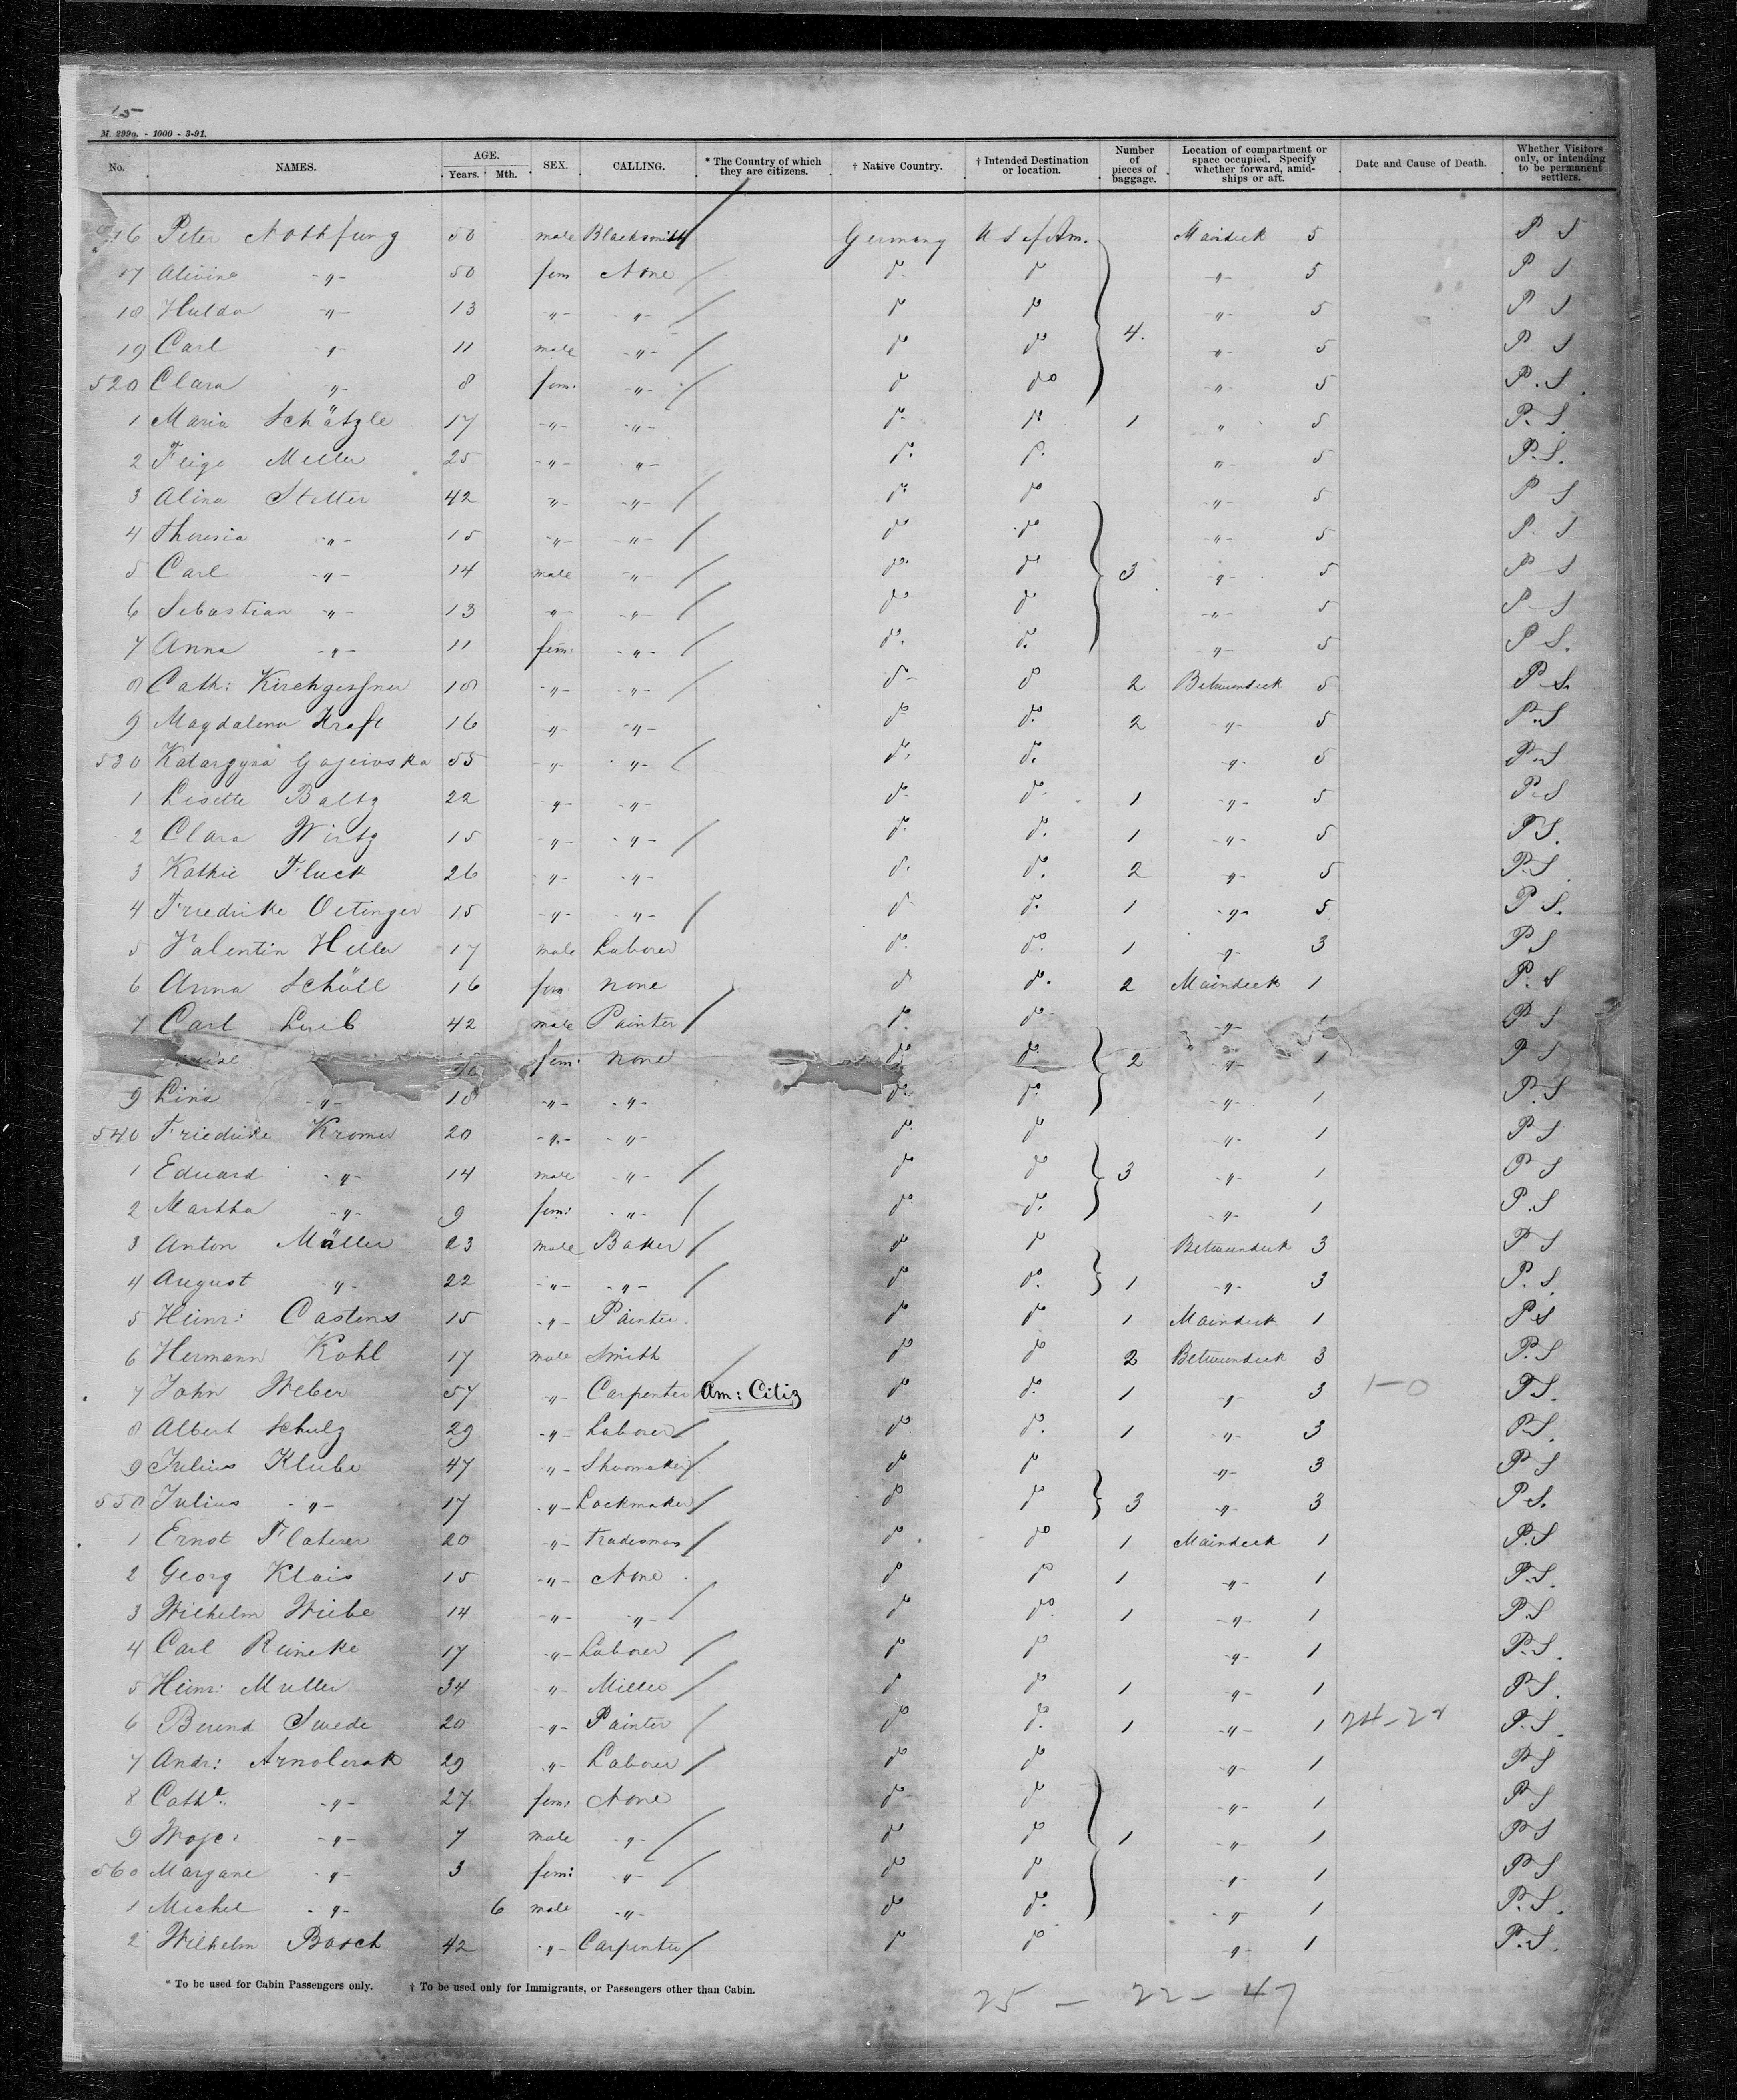 25
M. 299a. - 1000 - 3-91.
No. NAMES. AGE. Years. Mth. SEX. CALLING. * The Country of which they are citizens. † Native Country. † Intended Destination or location. Number of pieces of baggage. Location of compartment or space occupied. Specify whether forward, amidships or aft. Date and Cause of Death. Whether Visitors only, or intending to be permanent settlers.
516 Peter Nothfung 50 male Blacksmith Germany U S of Am. Maindeck 5 P S
17 Alivine -"- 50 fem None do do -"- 5 P S
18 Hulda -"- 13 -"- -"- do do -"- 5 P S
19 Carl -"- 11 male -"- do do 4. -"- 5 P S
520 Clara -"- 8 fem: -"- do do -"- 5 P.S.
1 Maria Schätzle 17 -"- -"- do do 1 " 5 P.S.
2 Feige Meller 25 -"- -"- do do -"- 5 P.S.
3 Alina Stetter 42 -"- -"- do do -"- 5 P S
4 Theresia -"- 15 -"- -"- do do -"- 5 P S
5 Carl -"- 14 male -"- do do 3 -"- 5 P S
6 Sebastian -"- 13 -"- -"- do do -"- 5 P S
7 Anna -"- 11 fem: -"- do do -"- 5 P S.
8 Cath: Kirchgessner 18 -"- -"- do do 2 Betweendeck 5 P S.
9 Magdalena Kraft 16 -"- -"- do do 2 -"- 5 P.S
530 Katarzyna Gajewska 55 -"- -"- do do -"- 5 P.S
1 Lisette Baltz 22 -"- -"- do do 1 -"- 5 P.S
2 Clara Wirtz 15 -"- -"- do do 1 -"- 5 P S.
3 Kathie Fluck 26 -"- -"- do do 2 -"- 5 P.S.
4 Friedrike Oetinger 15 -"- -"- do do 1 -"- 5 P S.
5 Valentin Heller 17 male Laborer do do 1 -"- 3 P S
6 Anna Schüll 16 fem. none do do 2 Maindeck 1 P. S
7 Carl Leib 42 male Painter do do -"- 1 P S
fem: none do do 2 -"- 1 P S
9 Lina -"- 18 -"- -"- do do -"- 1 P.S
540 Friedrike Kromer 20 -"- -"- do do -"- 1 P S
1 Eduard -"- 14 male -"- do do 3 -"- 1 P S
2 Martha -"- 9 fem: -"- do do -"- 1 P.S
3 Anton Müller 23 male Baker do do Betweendeck 3 P S
4 August -"- 22 -"- -"- do do 1 -"- 3 P. S.
5 Heinr: Castens 15 -"- Painter do do 1 Maindeck 1 P S
6 Hermann Kohl 17 male Smith do do 2 Betweendeck 3 P.S
7 John Weber 57 -"- Carpenter Am: Citiz do do 1 -"- 3 1-0 P S.
8 Albert Schulz 29 -"- Laborer do do 1 -"- 3 P.S.
9 Julius Klube 47 -"- Shoemaker do do -"- 3 P S
550 Julius -"- 17 -"- Lockmaker do do 3 -"- 3 P S.
1 Ernst Flaterer 20 -"- Tradesman do do 1 Maindeck 1 P.S
2 Georg Klais 15 -"- None do do 1 -"- 1 P.S.
3 Wilhelm Wiebe 14 -"- -"- do do 1 -"- 1 P.S
4 Carl Reineke 17 -"- Laborer do do -"- 1 P.S.
5 Heinr: Muller 34 -"- Miller do do 1 -"- 1 P S.
6 Berend Swede 20 -"- Painter do do 1 -"- 1 P.S.
7 Andr: Arnolerak 29 -"- Laborer do do -"- 1 P S
8 Cath. -"- 27 fem: None do do -"- 1 P S
9 Wojc: -"- 7 male -"- do do 1 -"- 1 P S
560 Margane -"- 3 fem: -"- do do -"- 1 P S
1 Michel -"- 6 male -"- do do -"- 1 P.S.
2 Wilhelm Bosch 42 -"- Carpenter do do -"- 1 P.S.
* To be used for Cabin Passengers only. † To be used only for Immigrants, or Passengers other than Cabin.
25 - 22 - 47